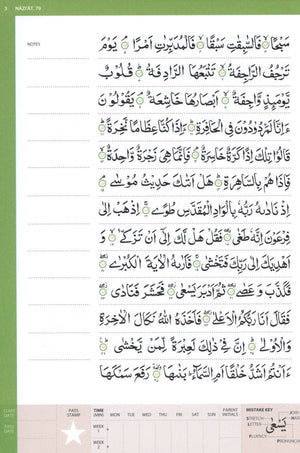 3 NĀZI'ĀT, 79
NOTES
سَبْحًا ۝ فَالسّٰبِقٰتِ سَبْقًا ۝ فَالْمُدَبِّرٰتِ اَمْرًا ۝ يَوْمَ
تَرْجُفُ الرَّاجِفَةُ ۝ تَتْبَعُهَا الرَّادِفَةُ ۝ قُلُوْبٌ
يَّوْمَئِذٍ وَّاجِفَةٌ ۝ اَبْصَارُهَا خَاشِعَةٌ ۝ يَقُوْلُوْنَ
ءَاِنَّا لَمَرْدُوْدُوْنَ فِي الْحَافِرَةِ ۝ ءَاِذَا كُنَّا عِظَامًا نَّخِرَةً ۝
قَالُوْا تِلْكَ اِذًا كَرَّةٌ خَاسِرَةٌ ۝ فَاِنَّمَا هِيَ زَجْرَةٌ وَّاحِدَةٌ ۝
فَاِذَا هُمْ بِالسَّاهِرَةِ ۝ هَلْ اَتٰىكَ حَدِيْثُ مُوْسٰى ۝
اِذْ نَادٰىهُ رَبُّهٗ بِالْوَادِ الْمُقَدَّسِ طُوًى ۝ اِذْهَبْ اِلٰى
فِرْعَوْنَ اِنَّهٗ طَغٰى ۝ فَقُلْ هَلْ لَّكَ اِلٰٓى اَنْ تَزَكّٰى ۝
وَاَهْدِيَكَ اِلٰى رَبِّكَ فَتَخْشٰى ۝ فَاَرٰىهُ الْاٰيَةَ الْكُبْرٰى ۝
فَكَذَّبَ وَعَصٰى ۝ ثُمَّ اَدْبَرَ يَسْعٰى ۝ فَحَشَرَ فَنَادٰى ۝
فَقَالَ اَنَا رَبُّكُمُ الْاَعْلٰى ۝ فَاَخَذَهُ اللّٰهُ نَكَالَ الْاٰخِرَةِ
وَالْاُوْلٰى ۝ اِنَّ فِيْ ذٰلِكَ لَعِبْرَةً لِّمَنْ يَّخْشٰى ۝
ءَاَنْتُمْ اَشَدُّ خَلْقًا اَمِ السَّمَآءُ بَنٰىهَا ۝ رَفَعَ سَمْكَهَا
START DATE PASS STAMP TIME (MIN) MON TUE WED THU FRI SAT SUN PARENT INITIALS MISTAKE KEY
WEEK 1
STRETCH LETTER يَسْعٰى
PASS DATE WEEK 2
FLUENCY